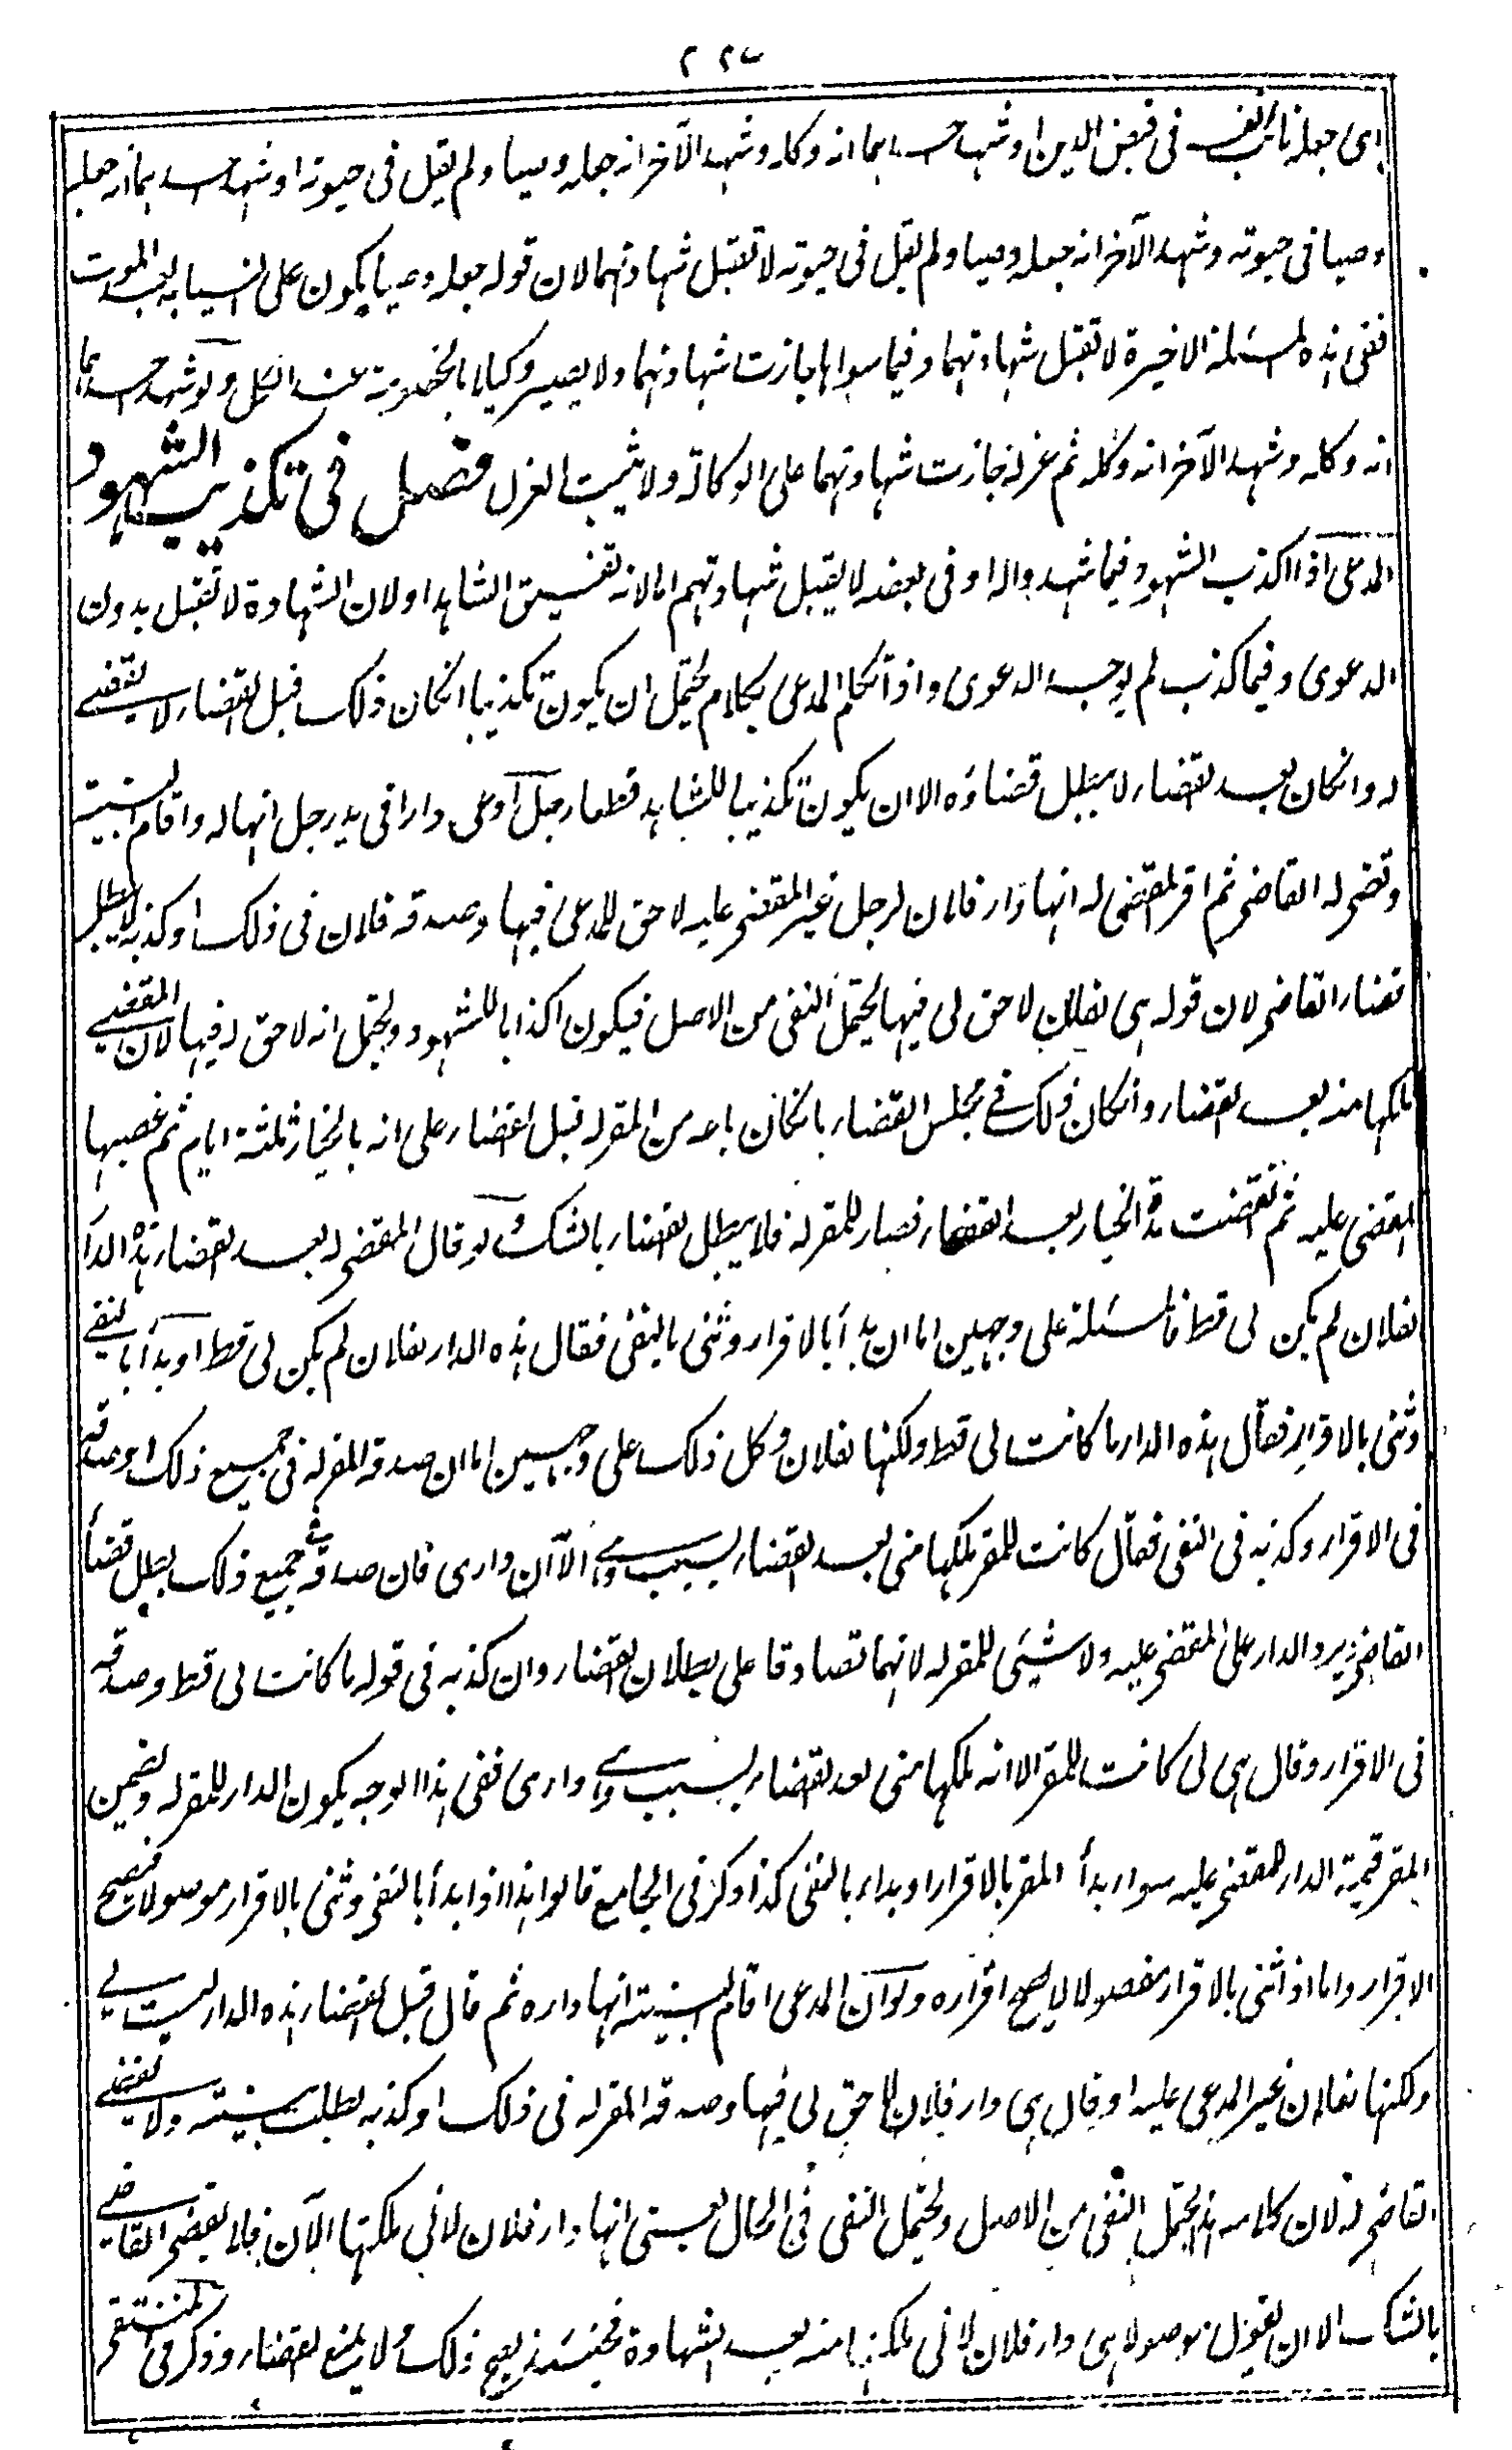 ٢٢٧
اى جعله نائب نفسه فى قبض الدين او شهد احدهما انه وكله وشهد الآخر انه جعله وصيا ولم يقل فى حيوته او شهد احدهما انه جعله
وصيا فى حيوته وشهد الآخر انه جعله وصيا ولم يقل فى حيوته لا تقبل شهادتهما لان قوله جعله وصيا يكون على النيابة بعد الموت
ففى هذه المسئلة الاخيرة لا تقبل شهادتهما وفيما سواها جازت شهادتهما ولا يصير وكيلا بالخصومة عند الكل ولو شهد احدهما
انه وكله وشهد الآخر انه وكله ثم عزله جازت شهادتهما على الوكالة ولا يثبت العزل فصل فى تكذيب الشهود
المدعى اذا اكذب الشهود فيما شهدوا له او فى بعضه لا يقبل شهادتهم اما لانه تفسيق الشاهد او لان الشهادة لا تقبل بدون
الدعوى وفيما كذب لم يوجد الدعوى واذا تكلم المدعى بكلام يحتمل ان يكون تكذيبا انكان ذلك قبل القضاء لا يقضى
له وانكان بعد القضاء لا يبطل قضاؤه الا ان يكون تكذيبا للشاهد قطعا رجل ادعى دارا فى يد رجل انها له واقام البينة
وقضى له القاضى ثم اقر المقضى له انها دار فلان لرجل غير المقضى عليه لا حق للمدعى فيها وصدقه فلان فى ذلك او كذبه لا يبطل
قضاء القاضى لان قوله هى لفلان لا حق لى فيها يحتمل النفى من الاصل فيكون اكذابا للشهود ويحتمل انه لا حق له فيها لان المقضى
ملكها منه بعد القضاء وانكان ذلك فى مجلس القضاء بانكان باعه من المقر له قبل القضاء على انه بالخيار ثلثة ايام ثم غصبها
المقضى عليه ثم انقضت مدة الخيار بعد القضاء فصار للمقر له فلا يبطل القضاء بالشك ولو قال المقضى له بعد القضاء هذه الدار
لفلان لم يكن لى قط فالمسئلة على وجهين اما ان بدأ بالاقرار وثنى بالنفى فقال هذه الدار لفلان لم يكن لى قط او بدأ بالنفى
وثنى بالاقرار فقال هذه الدار ما كانت لى قط ولكنها لفلان وكل ذلك على وجهين اما ان صدقه المقر له فى جميع ذلك او صدقه
فى الاقرار وكذبه فى النفى فقال كانت للمقر ملكها منى بعد القضاء بسبب وهى الآن دارى فان صدقه فى جميع ذلك يبطل قضاء
القاضى ويرد الدار على المقضى عليه ولا شيئ للمقر له لانهما تصادقا على بطلان القضاء وان كذبه فى قوله ما كانت لى قط وصدقه
فى الاقرار وقال هى لى كانت للمقر الا انه ملكها منى بعد القضاء بسبب وهى دارى ففى هذا الوجه يكون الدار للمقر له ويضمن
المقر قيمة الدار للمقضى عليه سواء بدأ المقر بالاقرار او بداء بالنفى كذا ذكر فى الجامع قالوا هذا اذا بدأ بالنفى وثنى بالاقرار موصولا فيصح
الاقرار واما اذا ثنى بالاقرار مفصولا لا يصح اقراره ولو ان المدعى اقام البينة انها داره ثم قال قبل القضاء هذه الدار ليست لى
ولكنها لفلان غير المدعى عليه او قال هى دار فلان لا حق لى فيها وصدقه المقر له فى ذلك او كذبه بطلت بينته ولا يقضى
القاضى له لان كلامه هذا يحتمل النفى من الاصل ويحتمل النفى فى الحال يعنى انها دار فلان لانى ملكتها الآن فلا يقضى القاضى
بالشك الا ان يقول موصولا هى دار فلان لانى ملكتها منه بعد الشهادة فحينئذ يصح ذلك ولا يمنع القضاء وذكر فى المنتقى